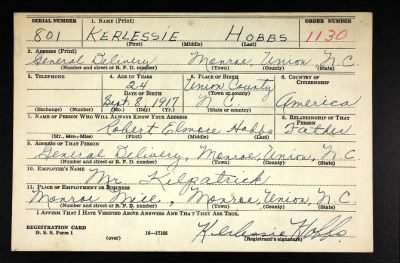 SERIAL NUMBER 1. NAME (Print) ORDER NUMBER
801 KERLESSIE HOBBS 1130
(First) (Middle) (Last)
2. ADDRESS (Print)
General Delivery Monroe, Union, N.C.
(Number and street or R. F. D. number) (Town) (County) (State)
3. TELEPHONE 4. AGE IN YEARS 5. PLACE OF BIRTH 6. COUNTRY OF CITIZENSHIP
24 Union County
DATE OF BIRTH (Town or county)
Sept. 8, 1917 N.C. America
(Exchange) (Number) (Mo.) (Day) (Yr.) (State or country)
7. NAME OF PERSON WHO WILL ALWAYS KNOW YOUR ADDRESS 8. RELATIONSHIP OF THAT PERSON
Robert Elmore Hobbs Father
(Mr., Mrs., Miss) (First) (Middle) (Last)
9. ADDRESS OF THAT PERSON
General Delivery, Monroe, Union, N.C.
(Number and street or R. F. D. number) (Town) (County) (State)
10. EMPLOYER'S NAME
Mr. Kilpatrick
11. PLACE OF EMPLOYMENT OR BUSINESS
Monroe, Monroe, Union, N.C.
(Number and street or R. F. D. number) (Town) (County) (State)
I AFFIRM THAT I HAVE VERIFIED ABOVE ANSWERS AND THAT THEY ARE TRUE.
REGISTRATION CARD
D. S. S. Form 1 (over) 16—17105 Kerlessie Hobbs
(Registrant's signature)